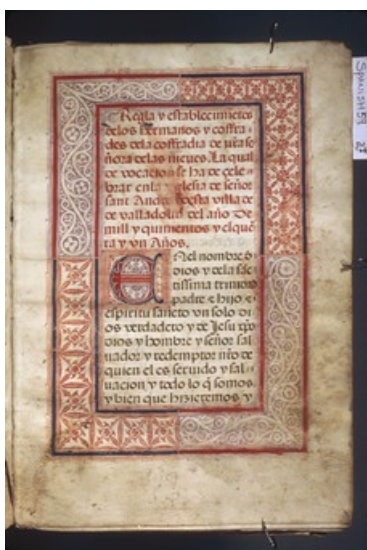 Regla y establecimietos
de los hermanos y coffra-
des dela coffradia de nr̃a se
ñora delas nieves. La qual
de vocacion se ha de cele-
brar en la yglesia de señor
sant Andres desta villa de
de valladolid del año De
mill y quinientos y cinquē
ta y vn Años.
EN el nombre d̄
dios y de la sāc
tissima trinidad
padre & hijo &
espiritu sancto vn solo di
os verdadero y de Jesu xp̄o
dios y hombre y señor sal
uador y redemptor nr̃o de
quien el es seruido y sal-
uacion y todo lo q̄ somos.
y bien que hizieremos y
Spanish 59
2r